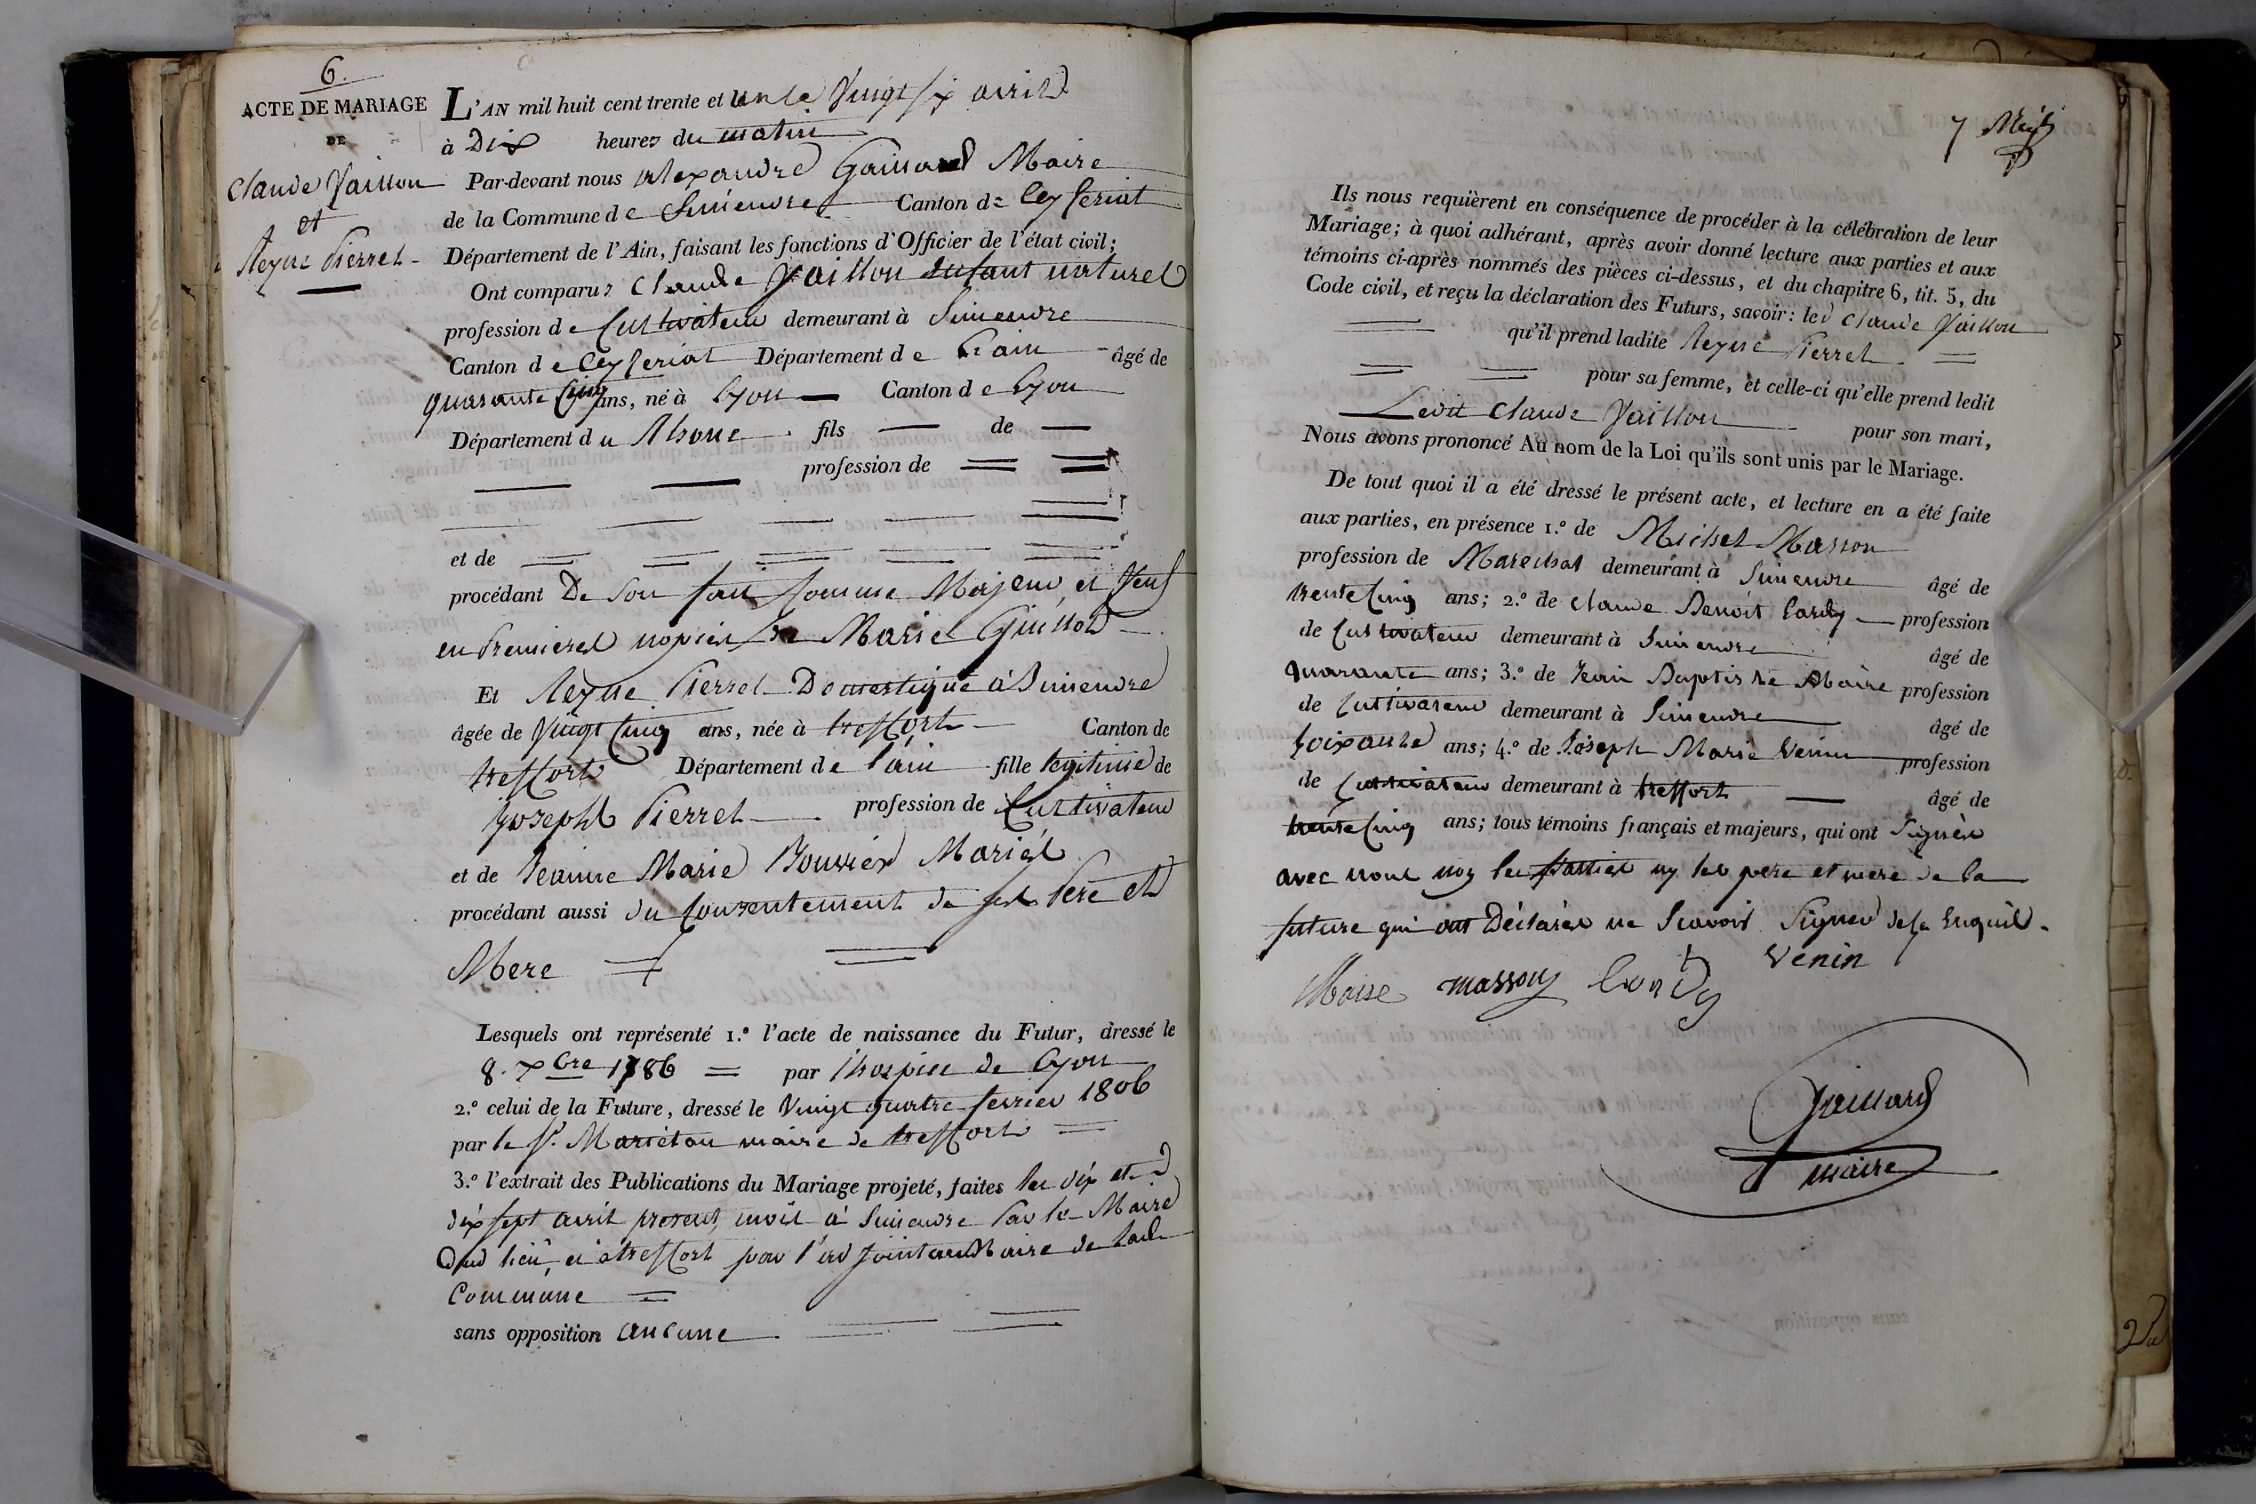 6.
ACTE DE MARIAGE
DE
Claude Vaillon
et
Reyne Pierrel
L'AN mil huit cent trente et un le Vingt six avril
à Dix heures du matin
Par-devant nous alexandre Gaillard Maire
de la Commune de Simendre Canton de Ceyseriat
Département de l'Ain, faisant les fonctions d'Officier de l'état civil;
Ont comparus Claude Vaillon enfant naturel
profession de Cultivateur demeurant à Simendre
Canton de Ceyseriat Département de L'ain âgé de
quarante Cinq ans, né à Lyon Canton de Lyon
Département du Rhone fils de
profession de
et de
procédant De Son fait Comme Majeur et Veuf
en Premieres nopces de Marie Guillot
Et Reyne Pierrel Domestique à Simendre
âgée de Vingt Cinq ans, née à treffort Canton de
treffort Département de l'ain fille legitime de
Joseph Pierrel profession de Cultivateur
et de Jeanne Marie Bouvier Mariés
procédant aussi du Consentement de ses Pere et
Mere
Lesquels ont représenté 1.º l'acte de naissance du Futur, dressé le
8. xbre 1786 par l'hospice de Lyon
2.º celui de la Future, dressé le Vingt quatre fevrier 1806
par le Sr. Marietan maire de treffort
3.º l'extrait des Publications du Mariage projeté, faites les dix et
dix sept avril present mois à Simendre Par le Maire
dud lieu, et à treffort par l'adjoint au Maire de lade
Commune
sans opposition aucune
7
Ils nous requièrent en conséquence de procéder à la célébration de leur
Mariage; à quoi adhérant, après avoir donné lecture aux parties et aux
témoins ci-après nommés des pièces ci-dessus, et du chapitre 6, tit. 5, du
Code civil, et reçu la déclaration des Futurs, savoir: led Claude Vaillon
qu'il prend ladite Reyne Pierrel
pour sa femme, et celle-ci qu'elle prend ledit
Ledit Claude Vaillon pour son mari,
Nous avons prononcé Au nom de la Loi qu'ils sont unis par le Mariage.
De tout quoi il a été dressé le présent acte, et lecture en a été faite
aux parties, en présence 1.º de Michel Masson
profession de Marechal demeurant à Simendre âgé de
trente Cinq ans; 2.º de Claude Benoit Cardy profession
de Cultivateur demeurant à Simendre âgé de
quarante ans; 3.º de Jean Baptiste Maire profession
de Cultivateur demeurant à Simendre âgé de
soixante ans; 4.º de Joseph Marie Venin profession
de Cultivateur demeurant à treffort âgé de
trente Cinq ans; tous témoins français et majeurs, qui ont Signés
avec nous non les parties ny les pere et mere de la
future qui ont Déclarés ne Scavoir Signer de ce Enquis.
Maire masson Cardy Venin
Gaillard
maire
sans opposition